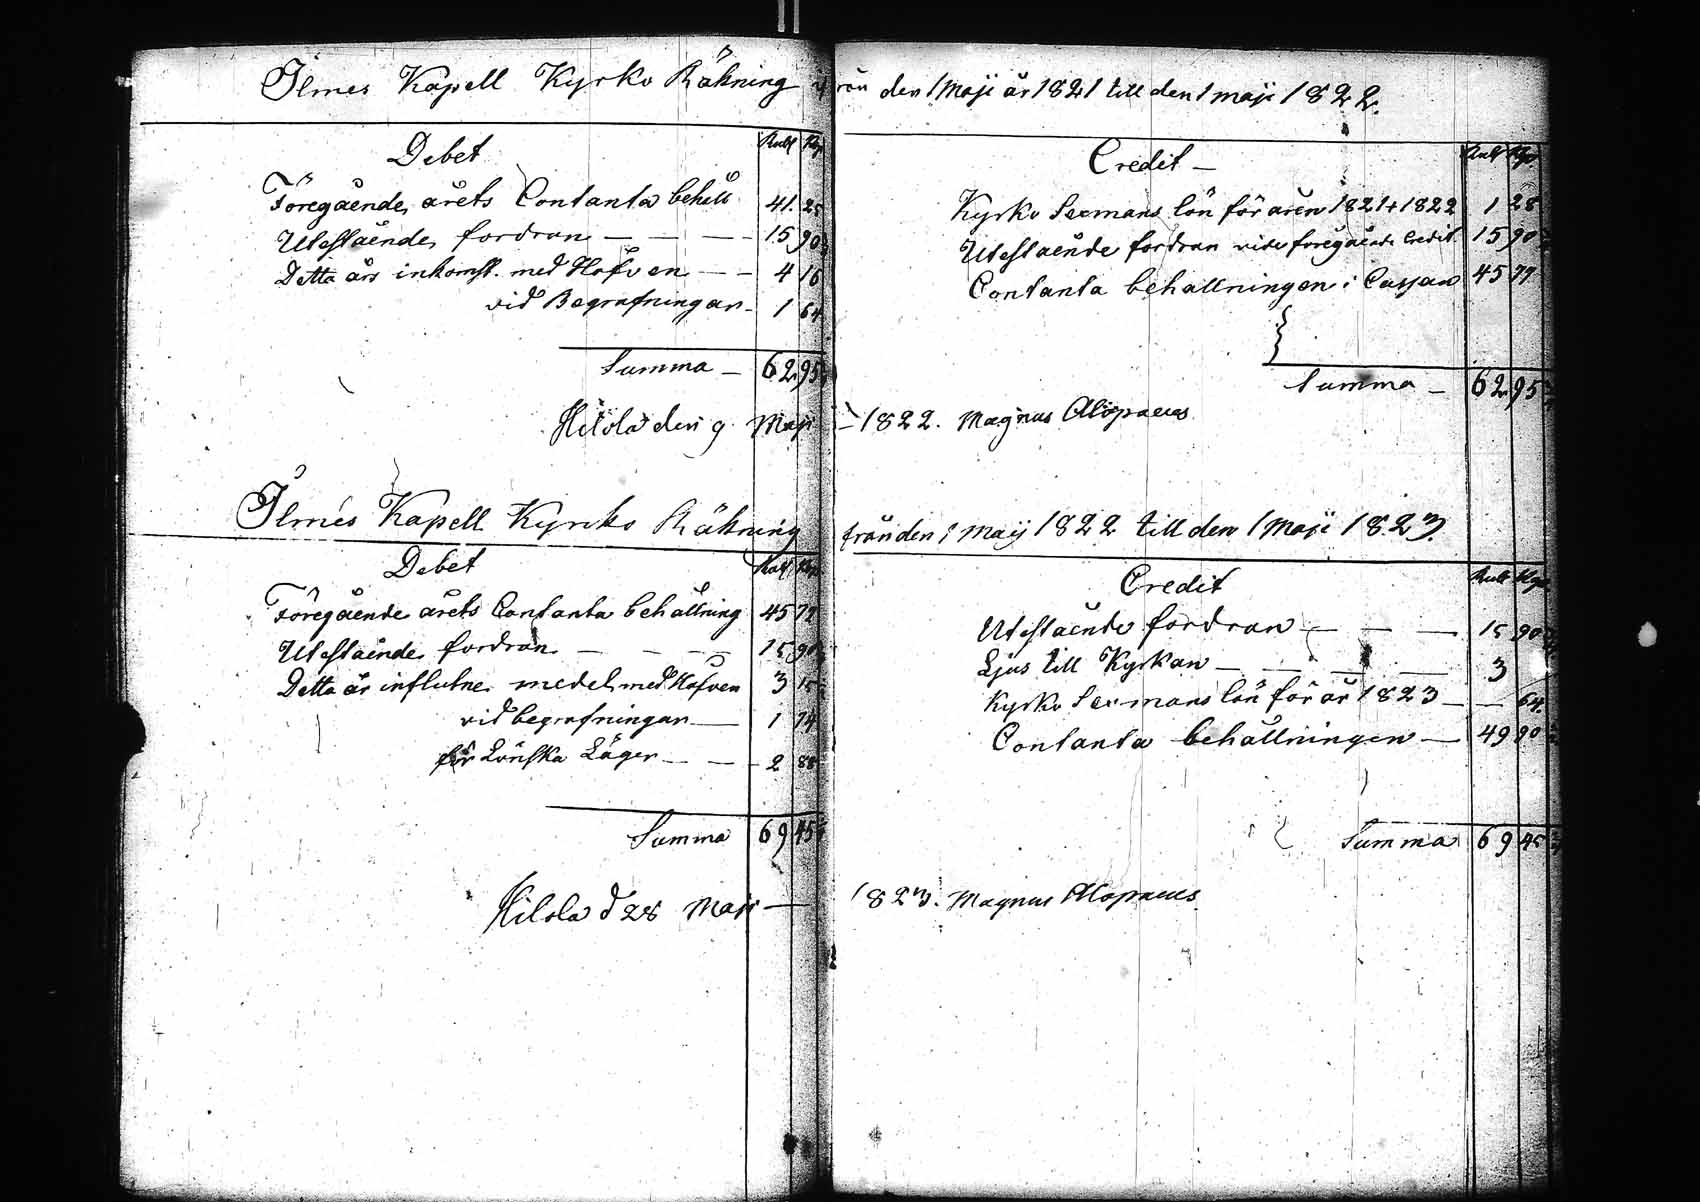 Ilmes Kapell Kyrko Räkning från den 1 Maji år 1821 till den 1 maji 1822.
Debet Rubl Kop
Föregående årets Contanta behåll 41. 25
Utestående fordran — — — 15 90
Detta års inkomst. med Håfven — — 4 16
vid Begrafningar — 1 64
Summa — 62. 95
Credit —
Rubl Kop
Kyrko Sexmans lön för åren 1821 + 1822 1 28
Utestående fordran vide foregående Credit 15 90
Contanta behållningen i Cassan 45 77
Summa — 62 95
Hilola den 9 Maji — 1822. Magnus Alopaeus
Ilmes Kapell Kyrko Räkning från den 1 Maij 1822 till den 1 Maji 1823.
Debet Rubl Kop
Föregående årets Contanta behållning 45 77
Utestående fordran — — — 15 90
Detta år influtne medel med Håfven 3 15
vid begrafningar — 1 74
för Lönska Läger — — 2 88
Summa 69 45
Credit Rubl Kop
Utestående fordran — — — 15 90
Ljus till Kyrkan — — — — 3
Kyrko Sexmans lön för år 1823 — — 64.
Contanta behållningen — 49 90
Summa 69 45
Hilola d 28 Maji — 1823. Magnus Alopaeus